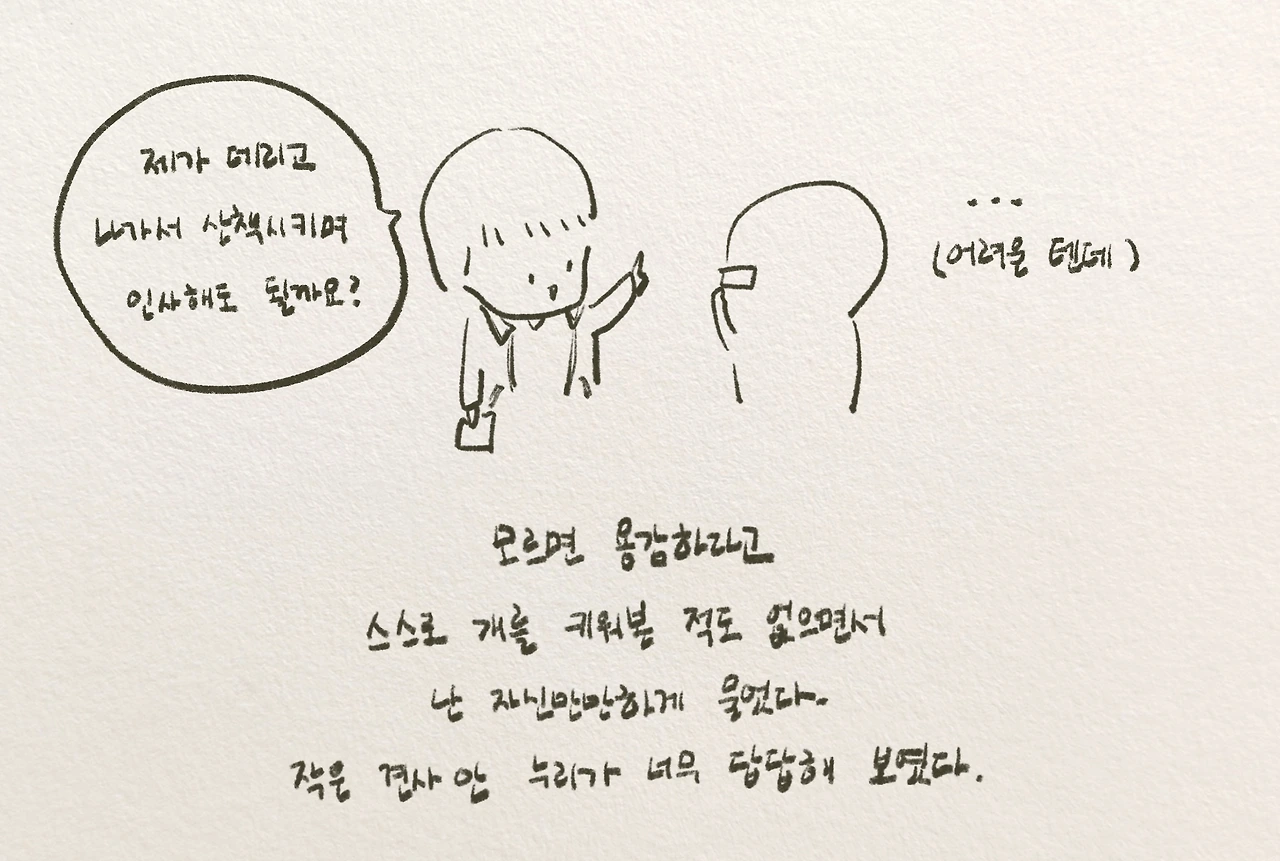 제가 데리고
나가서 산책시키며
인사해도 될까요?
...
(어려울 텐데)
모르면 용감하라고
스스로 개를 키워본 적도 없으면서
난 자신만만하게 물었다.
작은 견사 안 누리가 너무 답답해 보였다.